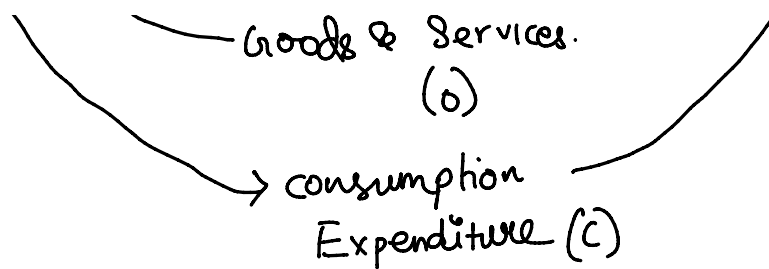 Goods & Services.
(O)
consumption
Expenditure (C)